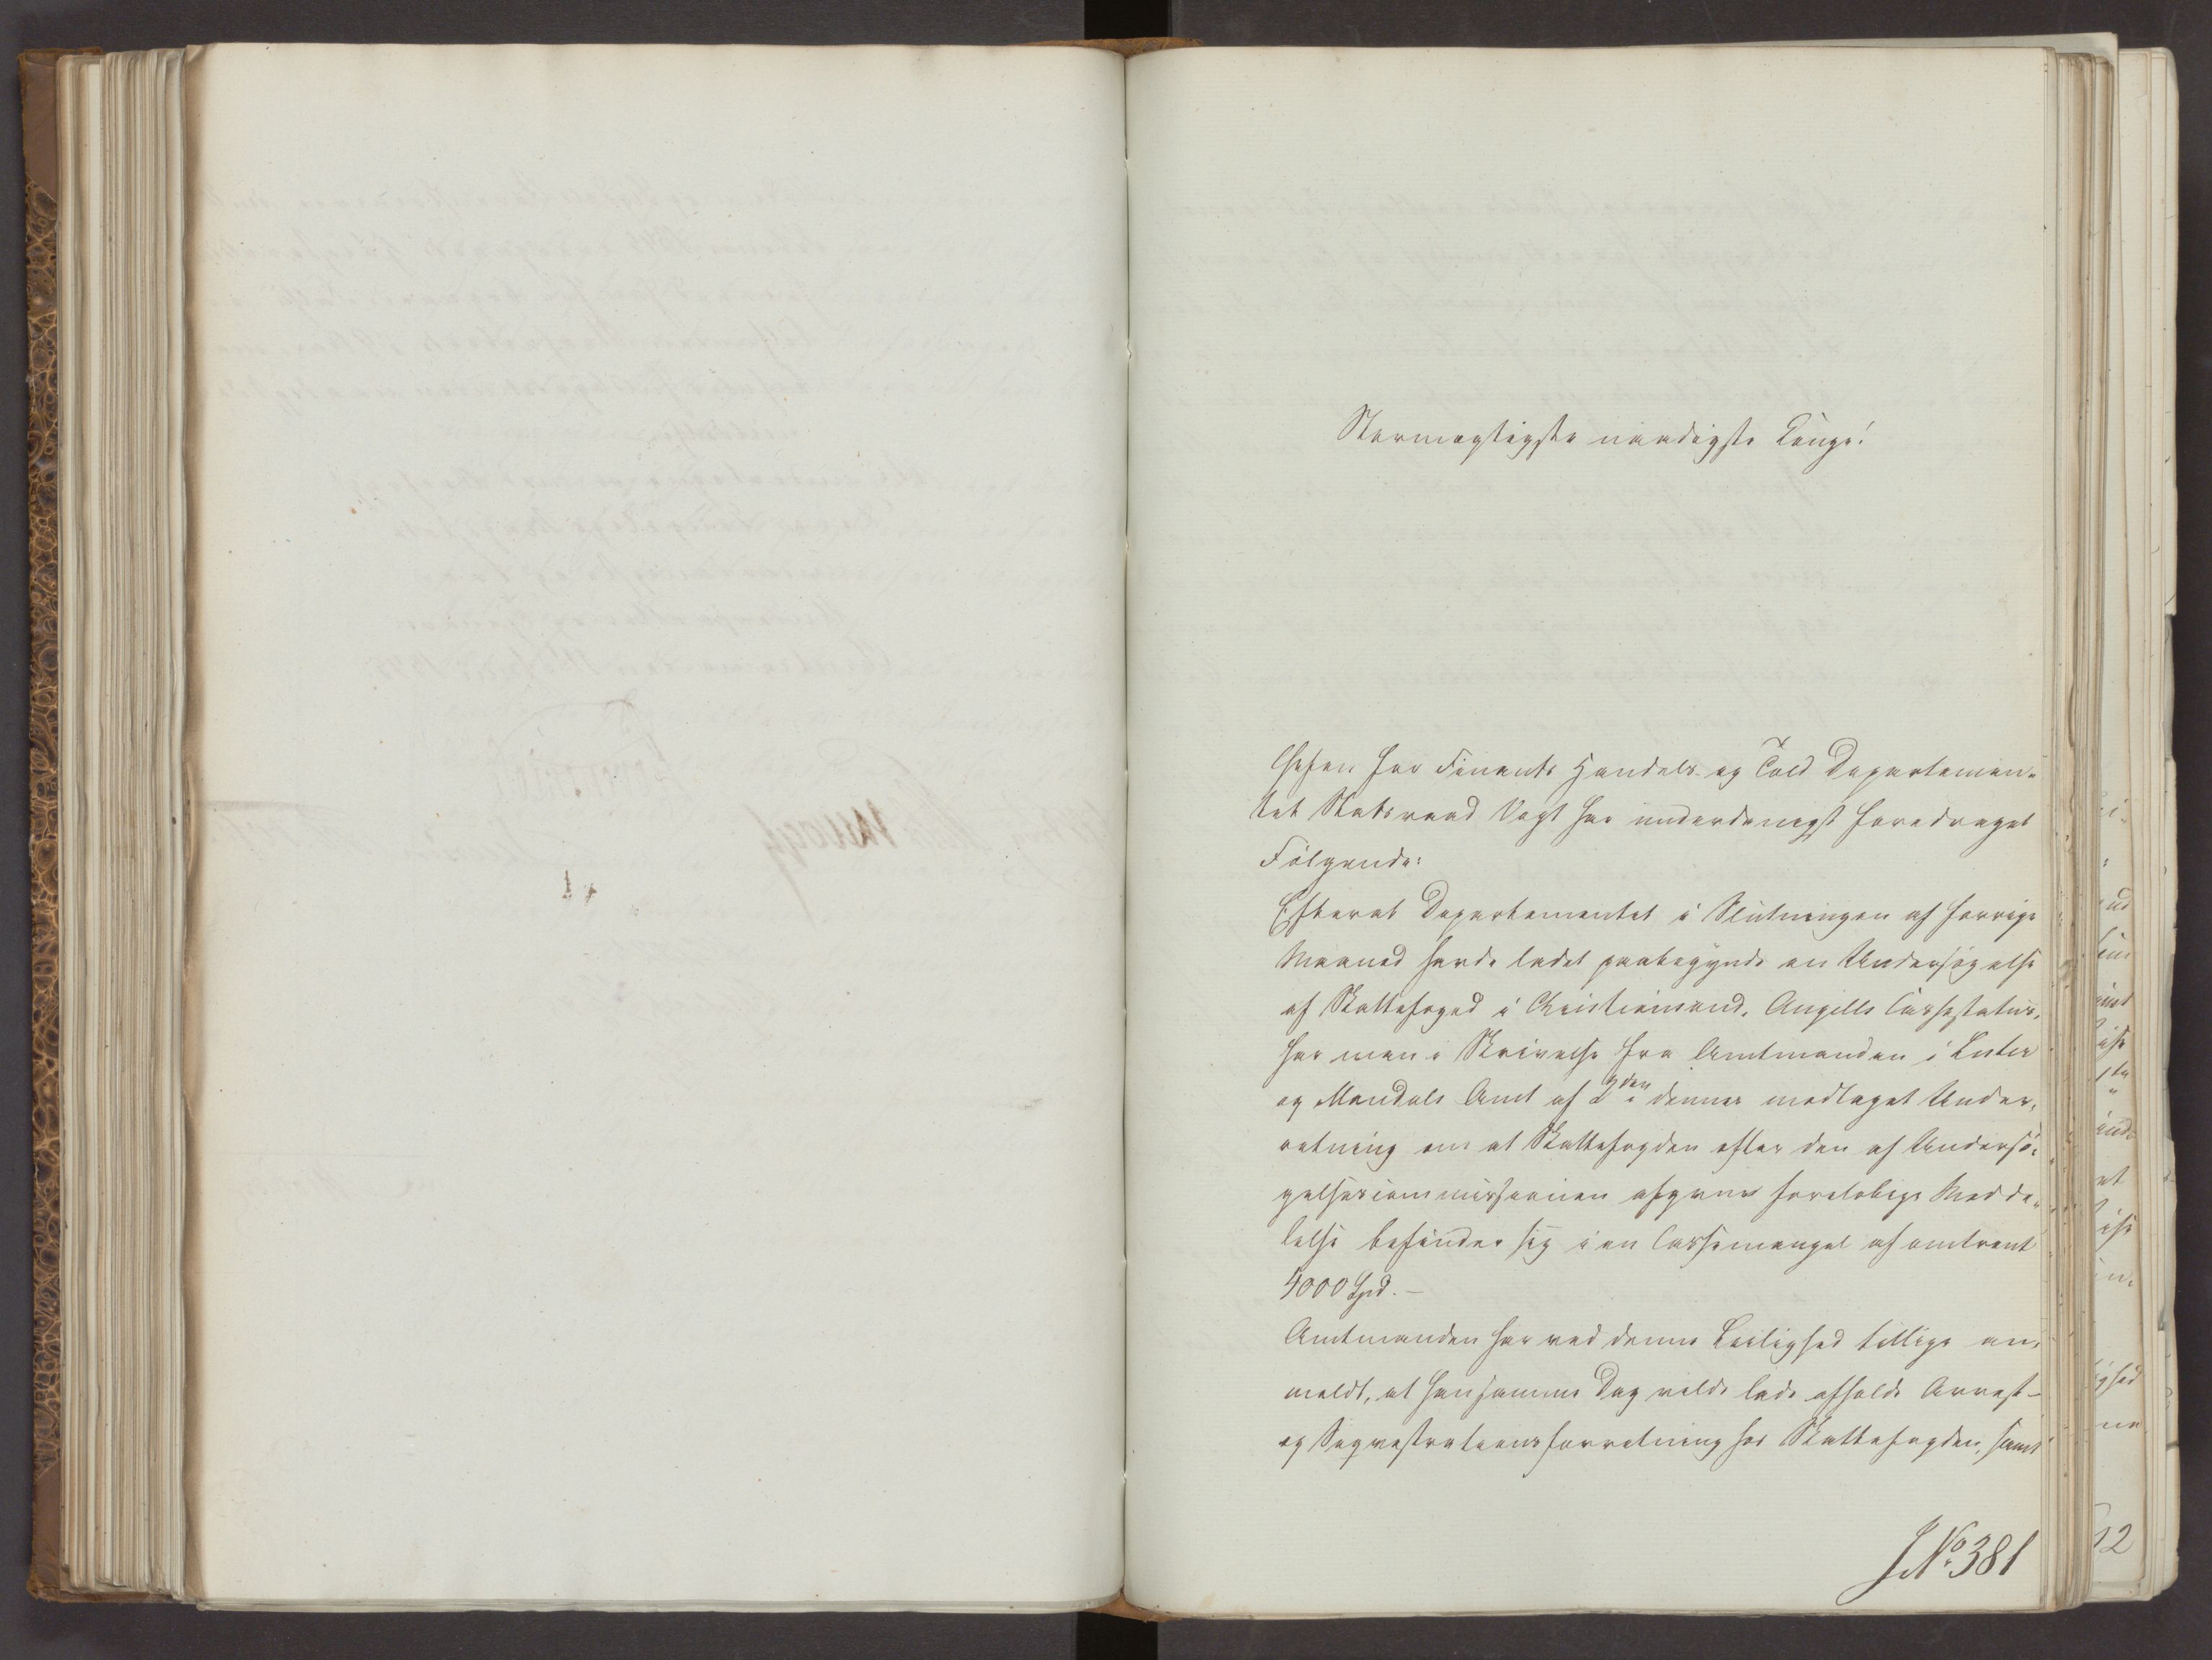 Stormægtigste naadigste Konge!
Chefen for Finants Handels- og Told Departemen-
tet Statsraad Vogt har underdanigst foredraget
Følgende:
Efterat Departementet i Slutningen af forrige
Maaned havde ladet paabegynde en Undersøgelse
af Skattefoged i Christiansand, Angells Cassestatus,
har man i Skrivelse fra Amtmanden i Lister
og Mandals Amt af 2den dennes modtaget Under-
retning om at Skattefogden efter den af Undersø-
gelsescommissionen afgivne foreløbige Medde-
lelse befinder sig i en Cassemangel af omtrent
4000 Spd. –
Amtmanden har ved denne Leilighed tillige an-
meldt, at han samme Dag vilde lade afholde Arrest-
og Seqvestrationsforretning hos Skattefogden, samt
J No 381